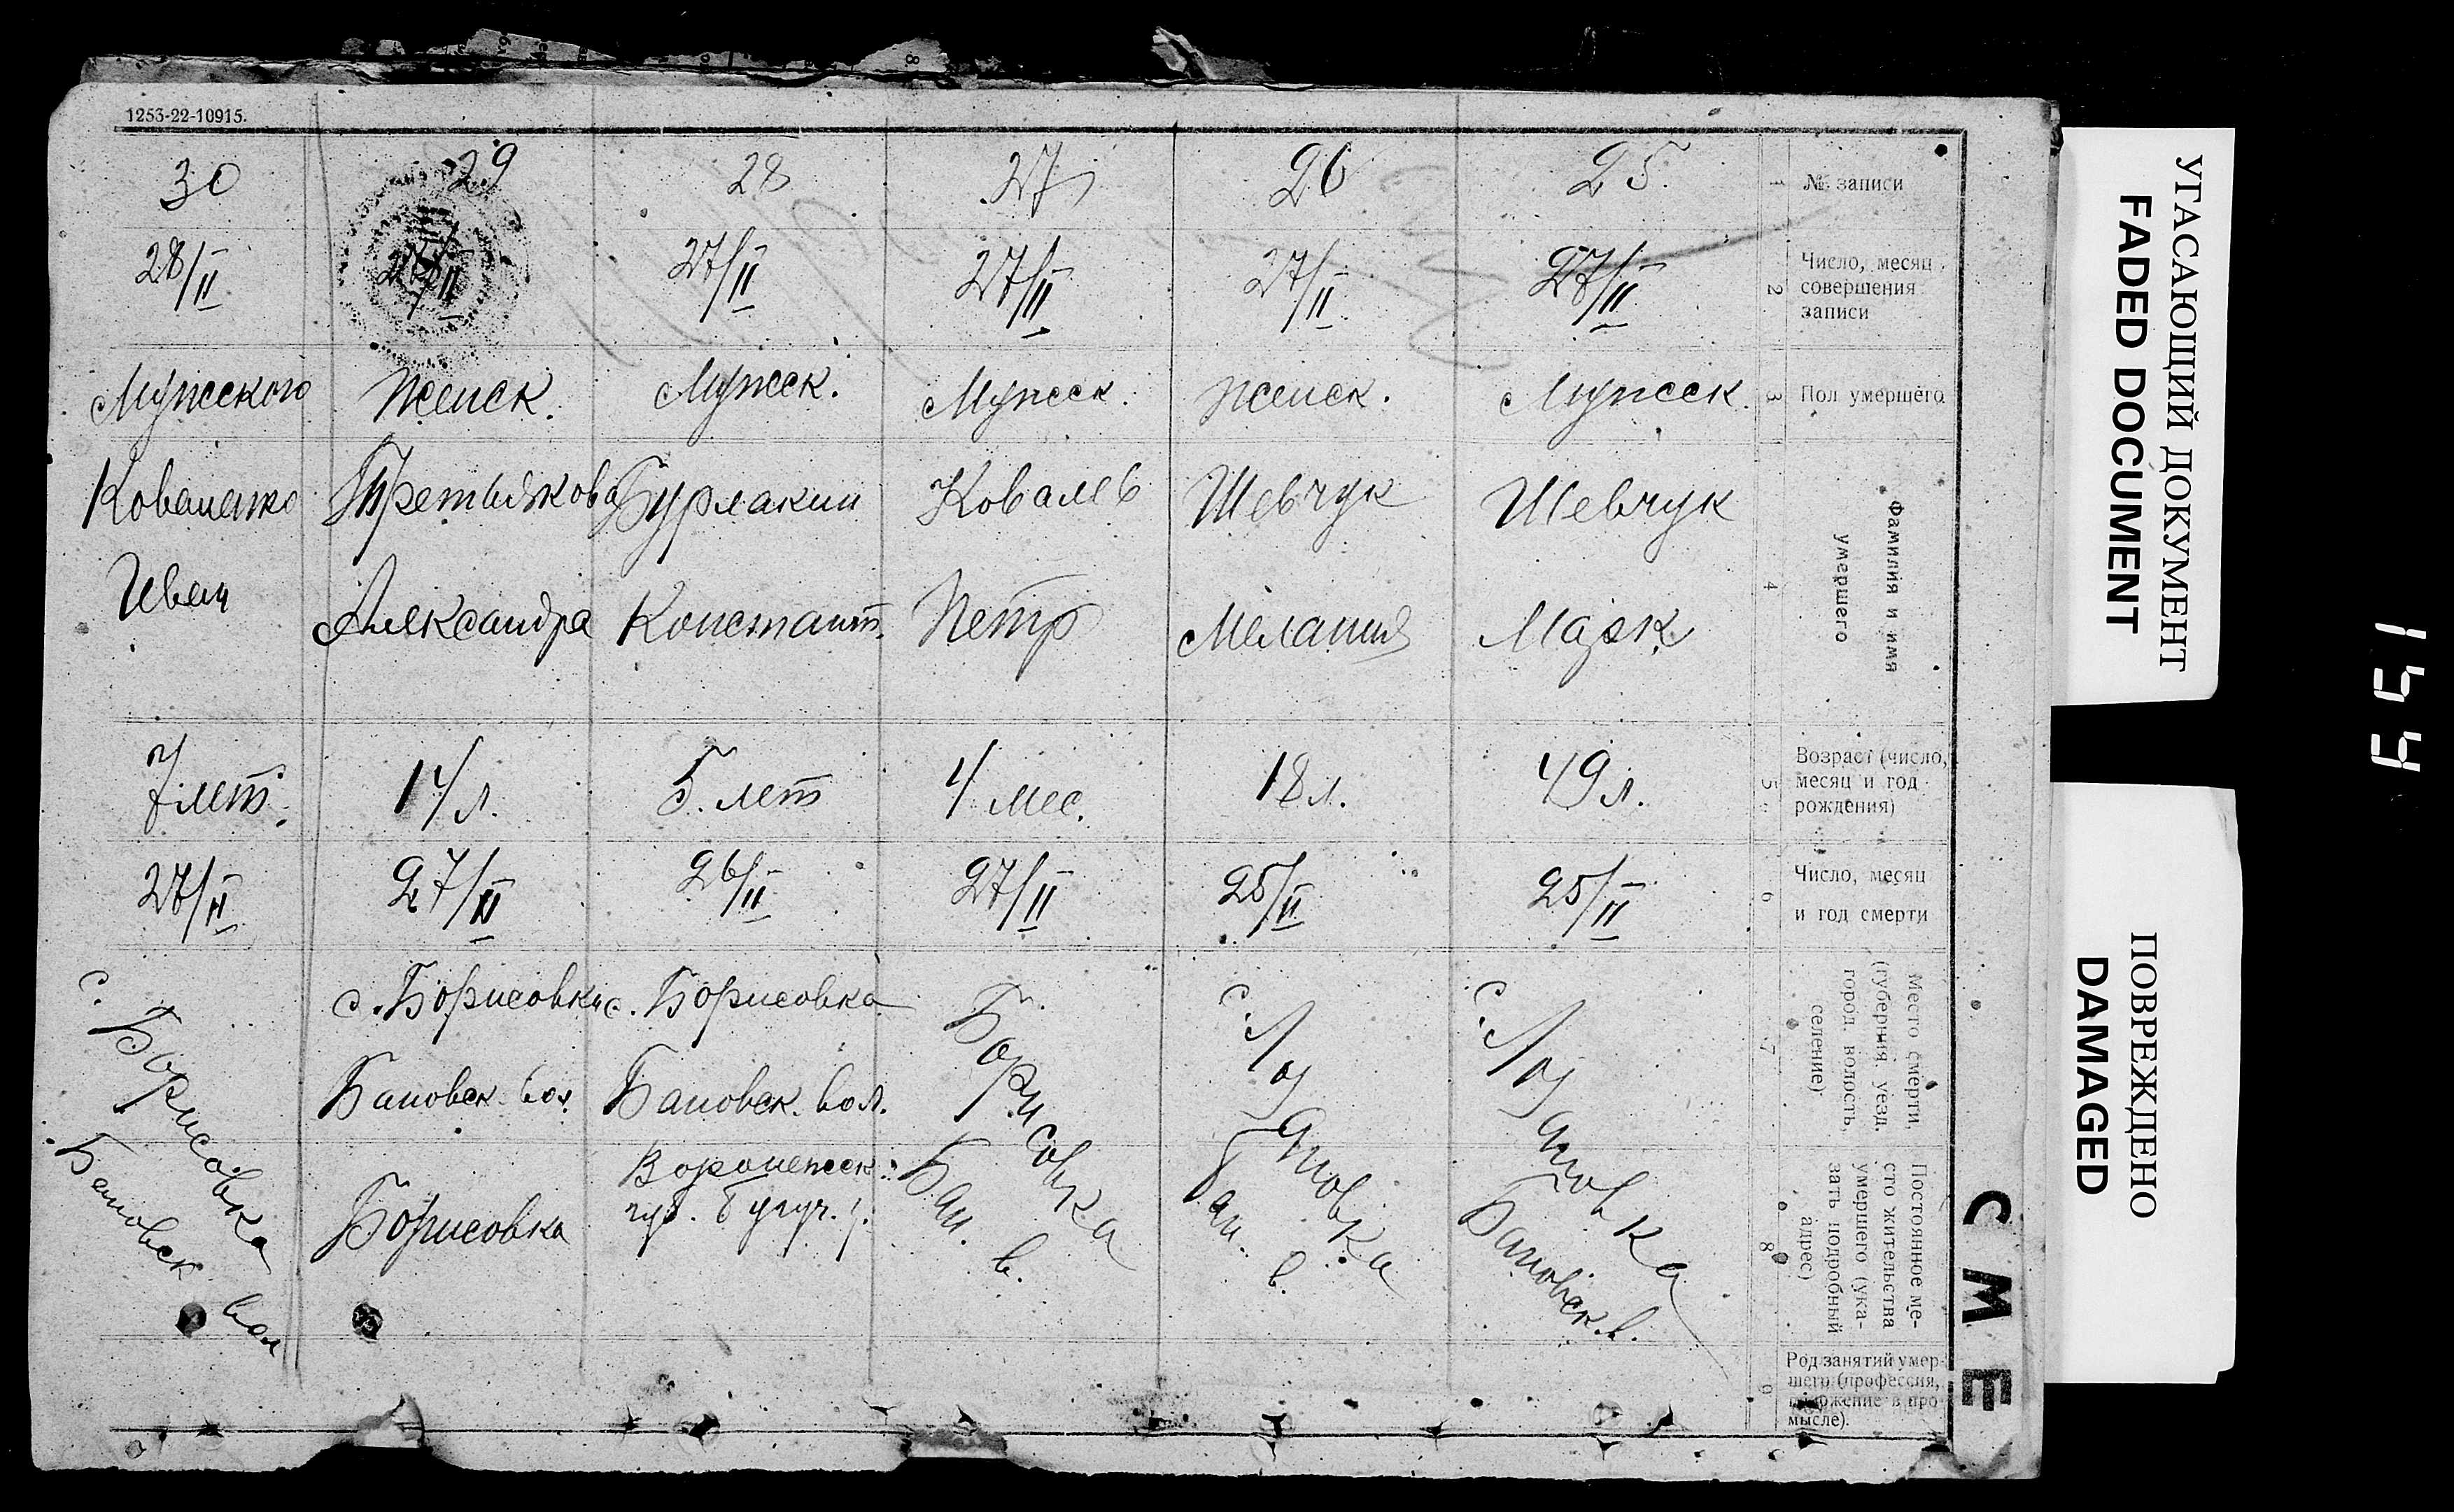 1253-22-10915.
30
29
28
27
26
25.
1
№ записи
28/II
27/II
27/II
27/II
27/II
2
Число, месяц
совершения
записи
Мужского
Женск.
Мужск.
Мужск.
Женск.
Мужск.
3
Пол умершего
Третьякова
Бурлакин
Ковалев
Шевчук
Шевчук
Иван
Александра
Констант.
Петр
Мелания
Марк
4
Фамилия и имя
умершего
7 лет.
14 л.
5. лет
4 мес.
18 л.
49 л.
5
Возраст (число,
месяц и год
рождения)
27/II
26/II
27/II
25/II
25/II
6
Число, месяц
и год смерти
с. Борисовка
с. Борисовка
с. Борисовка
Борисовка
с.
с.
вол
Бановск. вол.
Бановск. вол.
Бан. в.
Бан. в.
Бановск. в.
7
Место смерти
(губерния, уезд,
город, волость,
селение)
Борисовка
Воронежск.
губ.
8
Постоянное ме-
сто жительства
умершего (ука-
зать подробный
адрес)
9
Род занятий умер-
шего (профессия,
положение в про-
мысле).
СМЕ
УГАСАЮЩИЙ ДОКУМЕНТ
FADED DOCUMENT
ПОВРЕЖДЕНО
DAMAGED